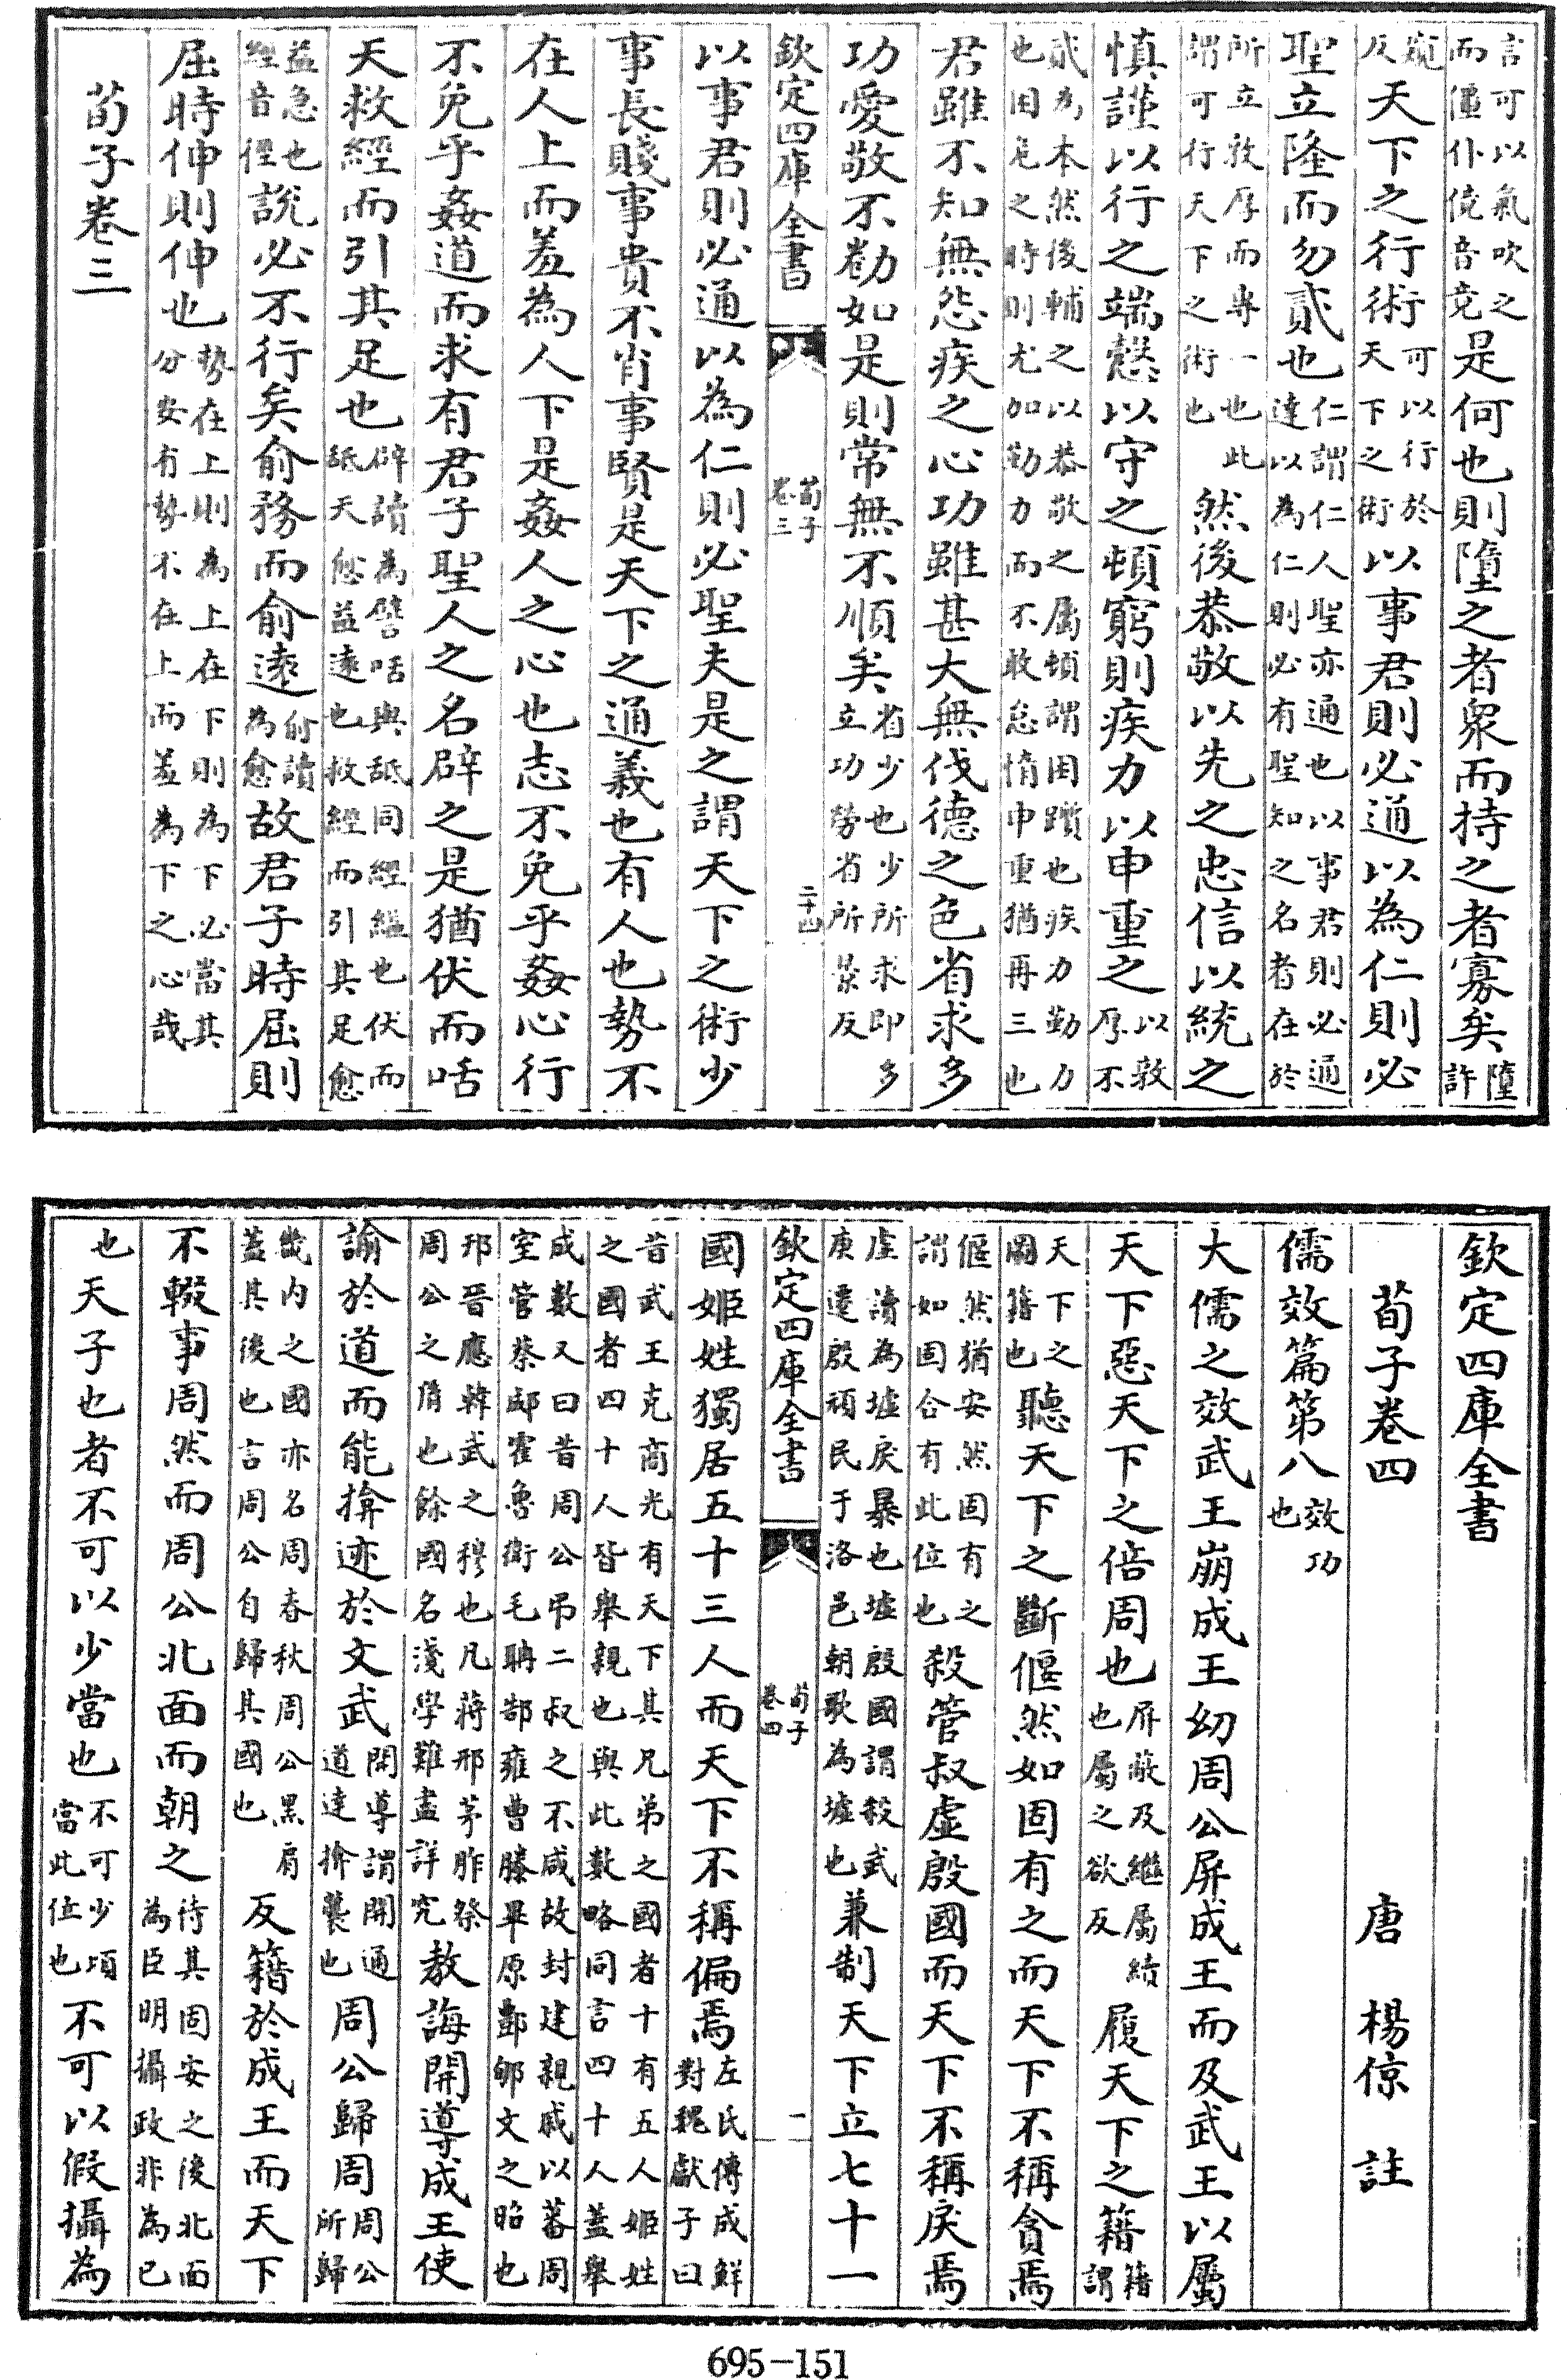 言可以氣吹之
而僵仆僥音竞
是何也則隳之者衆而持之者寡矣
隳
許
窺
反
天下之行術
可以行於
天下之術
以事君則必通以為仁則必
聖立隆而勿貳也
仁謂仁人聖亦通也以事君則必通
達以為仁則必有聖知之名者在於
所立敦厚而専一也此
謂可行天下之術也
然後恭敬以先之忠信以統之
慎謹以行之端慤以守之頓窮則疾力以申重之
以敦
厚不
貳為本然後輔之以恭敬之屬頓謂困躓也疾力勤力
也困危之時則尤加勤力而不敢怠惰申重猶再三也
君雖不知無怨疾之心功雖甚大無伐德之色省求多
功愛敬不勌如是則常無不順矣
省少也少所求即多
立功勞省所景反
欽定四庫全書
荀子
卷三
二十四
以事君則必通以為仁則必聖夫是之謂天下之術少
事長賤事貴不肖事賢是天下之通義也有人也勢不
在人上而羞為人下是姦人之心也志不免乎姦心行
不免乎姦道而求有君子聖人之名辟之是猶伏而咶
天救經而引其足也
辟讀為譬咶與舐同經縊也伏而
舐天愈益遠也救經而引其足愈
益急也
經音徑
說必不行矣俞務而俞遠
俞讀
為愈
故君子時屈則
屈時伸則伸也
勢在上則為上在下則為下必當其
分安有勢不在上而羞為下之心哉
荀子卷三
欽定四庫全書
荀子卷四
唐 楊倞 註
儒效篇第八
效功
也
大儒之效武王崩成王幼周公屏成王而及武王以屬
天下惡天下之倍周也
屏蔽及繼屬續
也屬之欲反
履天下之籍
籍
謂
天下之
圖籍也
聽天下之斷偃然如固有之而天下不稱貪焉
偃然猶安然固有之
謂如固合有此位也
殺管叔虛殷國而天下不稱戾焉
虛讀為墟戾暴也墟殷國謂殺武
庚遷殷頑民于洛邑朝歌為墟也
兼制天下立七十一
欽定四庫全書
荀子
卷四
一
國姬姓獨居五十三人而天下不稱偏焉
左氏傳成鱄
對魏獻子曰
昔武王克商光有天下其兄弟之國者十有五人姬姓
之國者四十人皆舉親也與此數略同言四十人蓋舉
成數又曰昔周公弔二叔之不咸故封建親戚以蕃周
室管蔡郕霍魯衛毛聃郜雍曹滕畢原酆郇文之昭也
邘晉應韓武之穆也凡蔣邢茅胙祭
周公之𦙍也餘國名淺學難盡詳究
教誨開導成王使
諭於道而能揜迹於文武
開導謂開通
道達揜襲也
周公歸周
周公
所歸
畿内之國亦名周春秋周公黑肩
蓋其後也言周公自歸其國也
反籍於成王而天下
不輟事周然而周公北面而朝之
待其固安之後北面
為臣明攝政非為己
也天子也者不可以少當也
不可少頃
當此位也
不可以假攝為
695-151